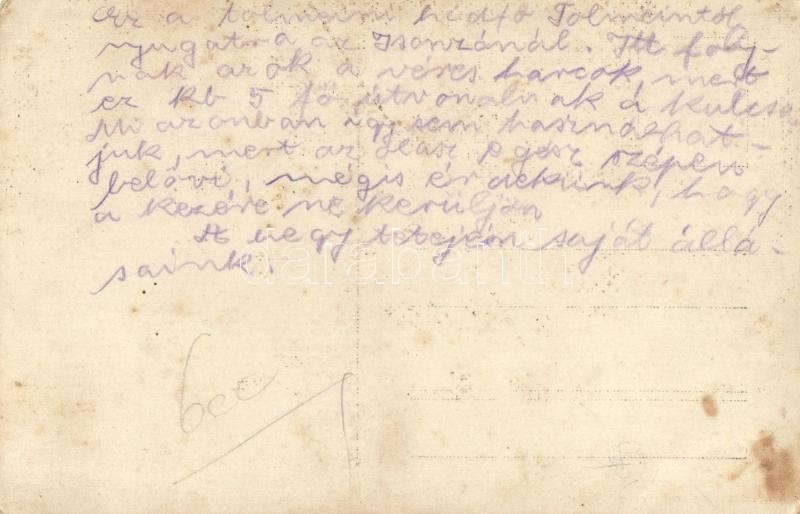 Ez a tolmeini hídfő Tolmeintól
nyugatra az Isonzónál. Itt foly-
nak azok a véres harcok, mert
ez kb 5 fő útvonalnak a kulcsa
Mi azonban úgy sem használhat-
juk, mert az olasz egész szépen
belövi, mégis érdekünk, hogy
a kezére ne kerüljön
A hegy tetején saját állá-
saink.
darabanth